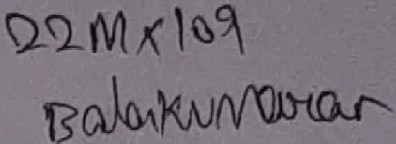 22MX109
Balakumaran